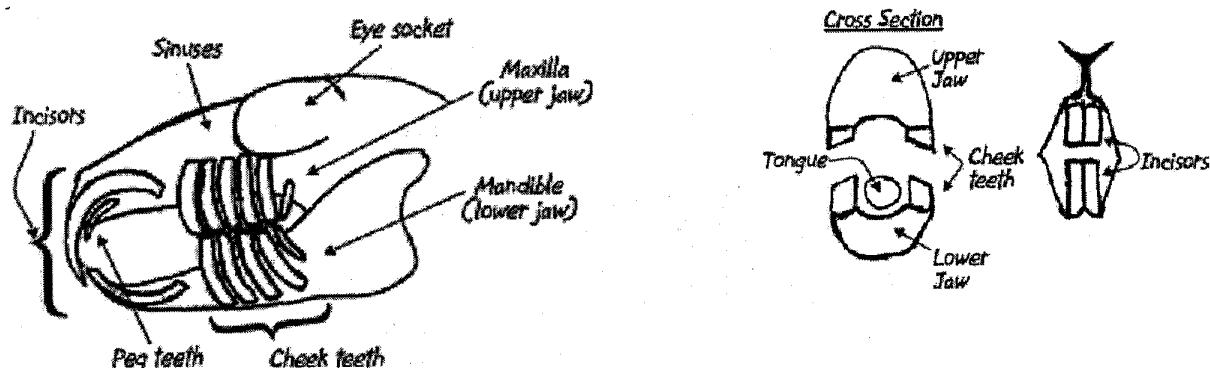 Eye socket
Sinuses
Maxilla
(upper jaw)
Incisors
Mandible
(lower jaw)
Peg teeth
Cheek teeth
Cross Section
Upper
Jaw
Tongue
Cheek
teeth
Incisors
Lower
Jaw